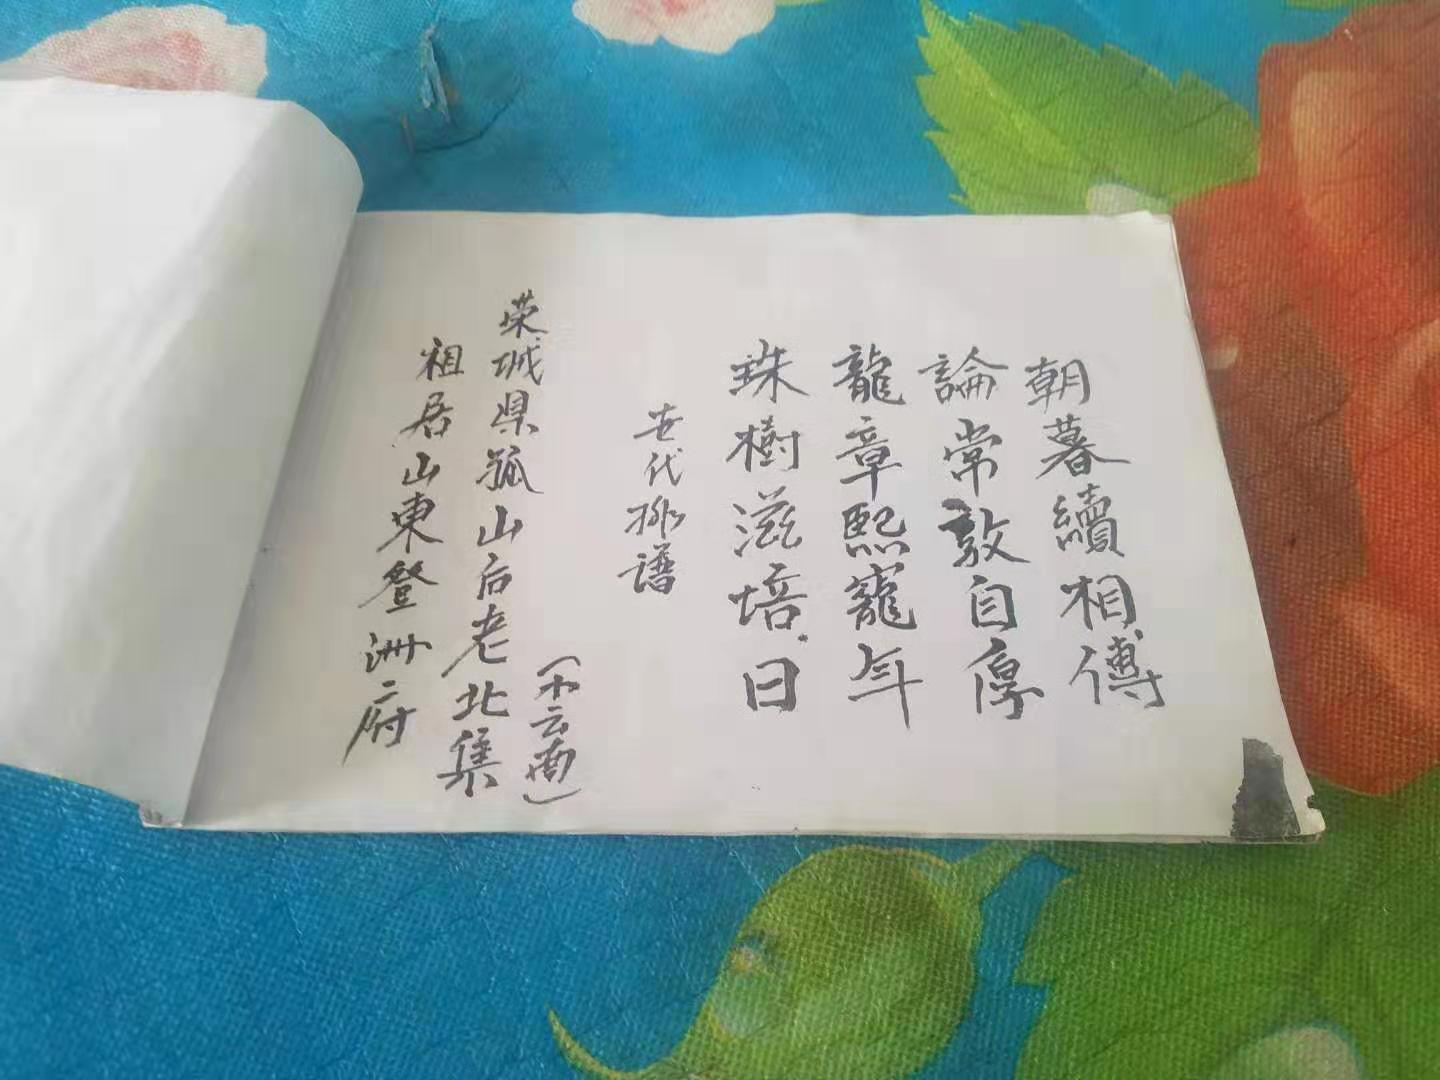 朝暮續相傅
論常敦自厚
龍章熙寵年
珠樹滋培日
世代排譜
祖居山東登洲府
荣城県孤山后老北集
(小云南)